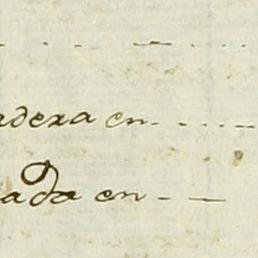 adera en
ada en